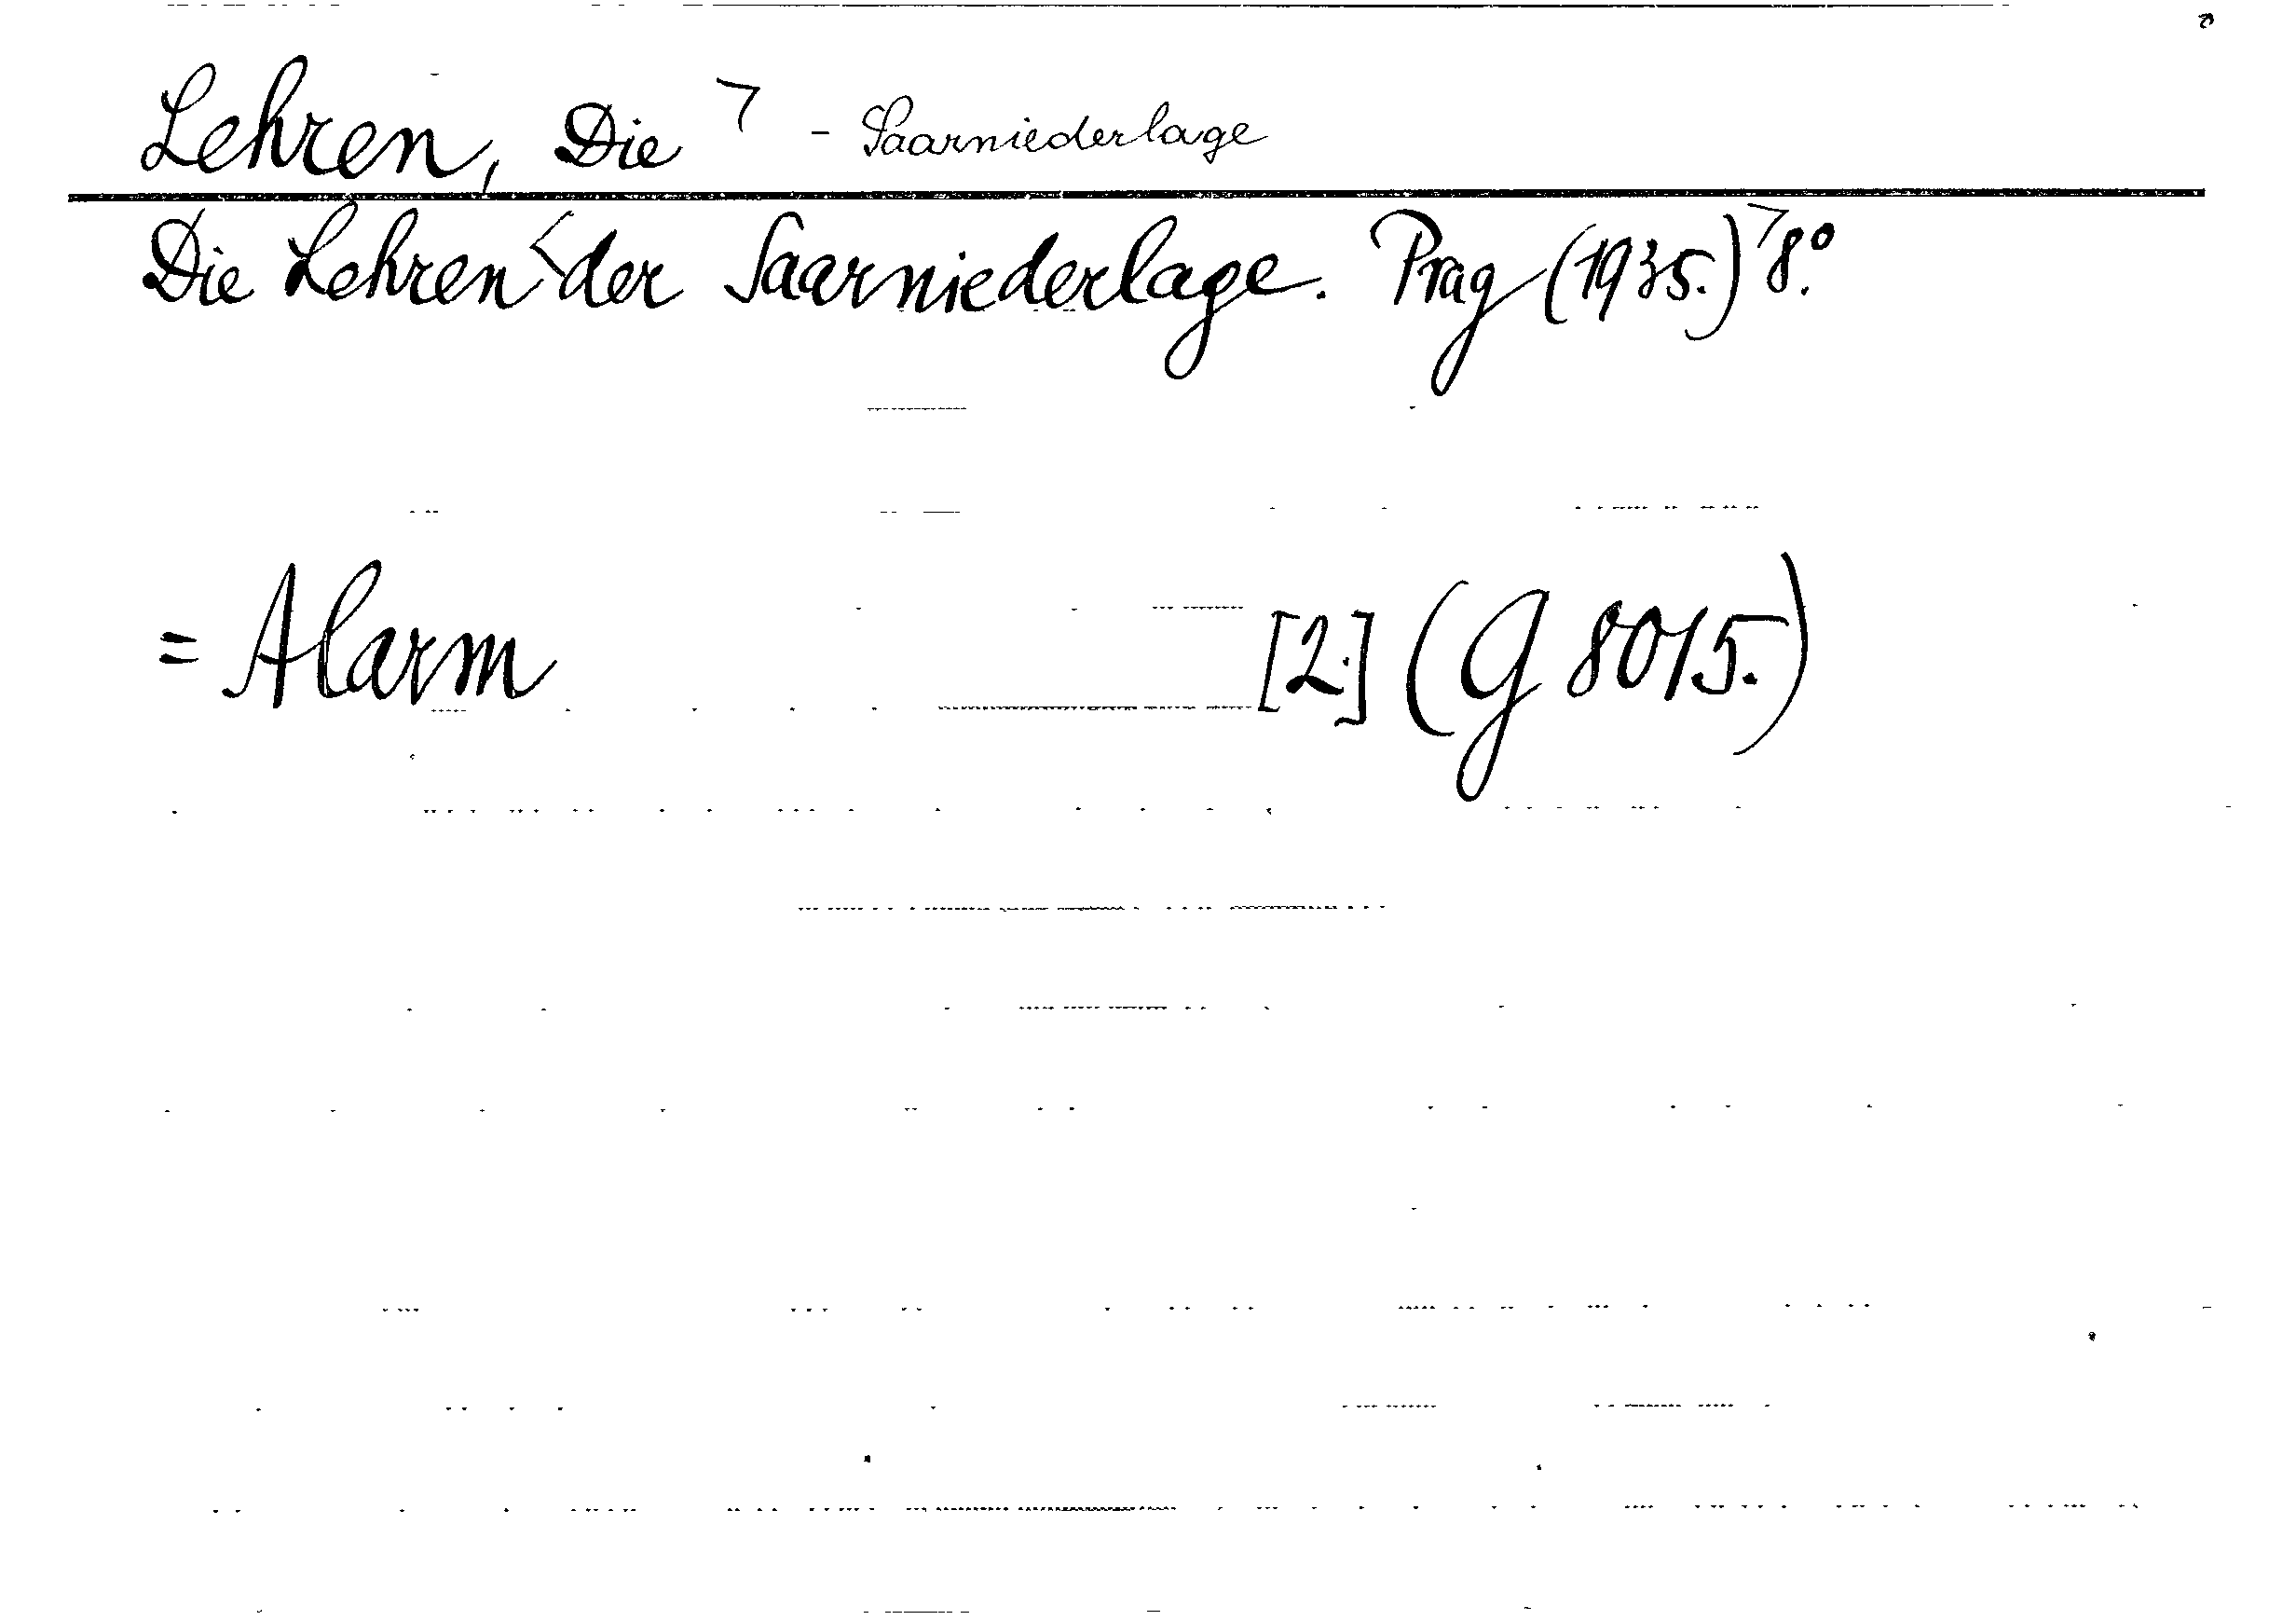 Lehren, Die ⁊ - Saarniederlage
Die Lehren < der Saarniederlage. Prag (1935.) ⁊ 8.º
= Alarm [2.] (G 8015.)